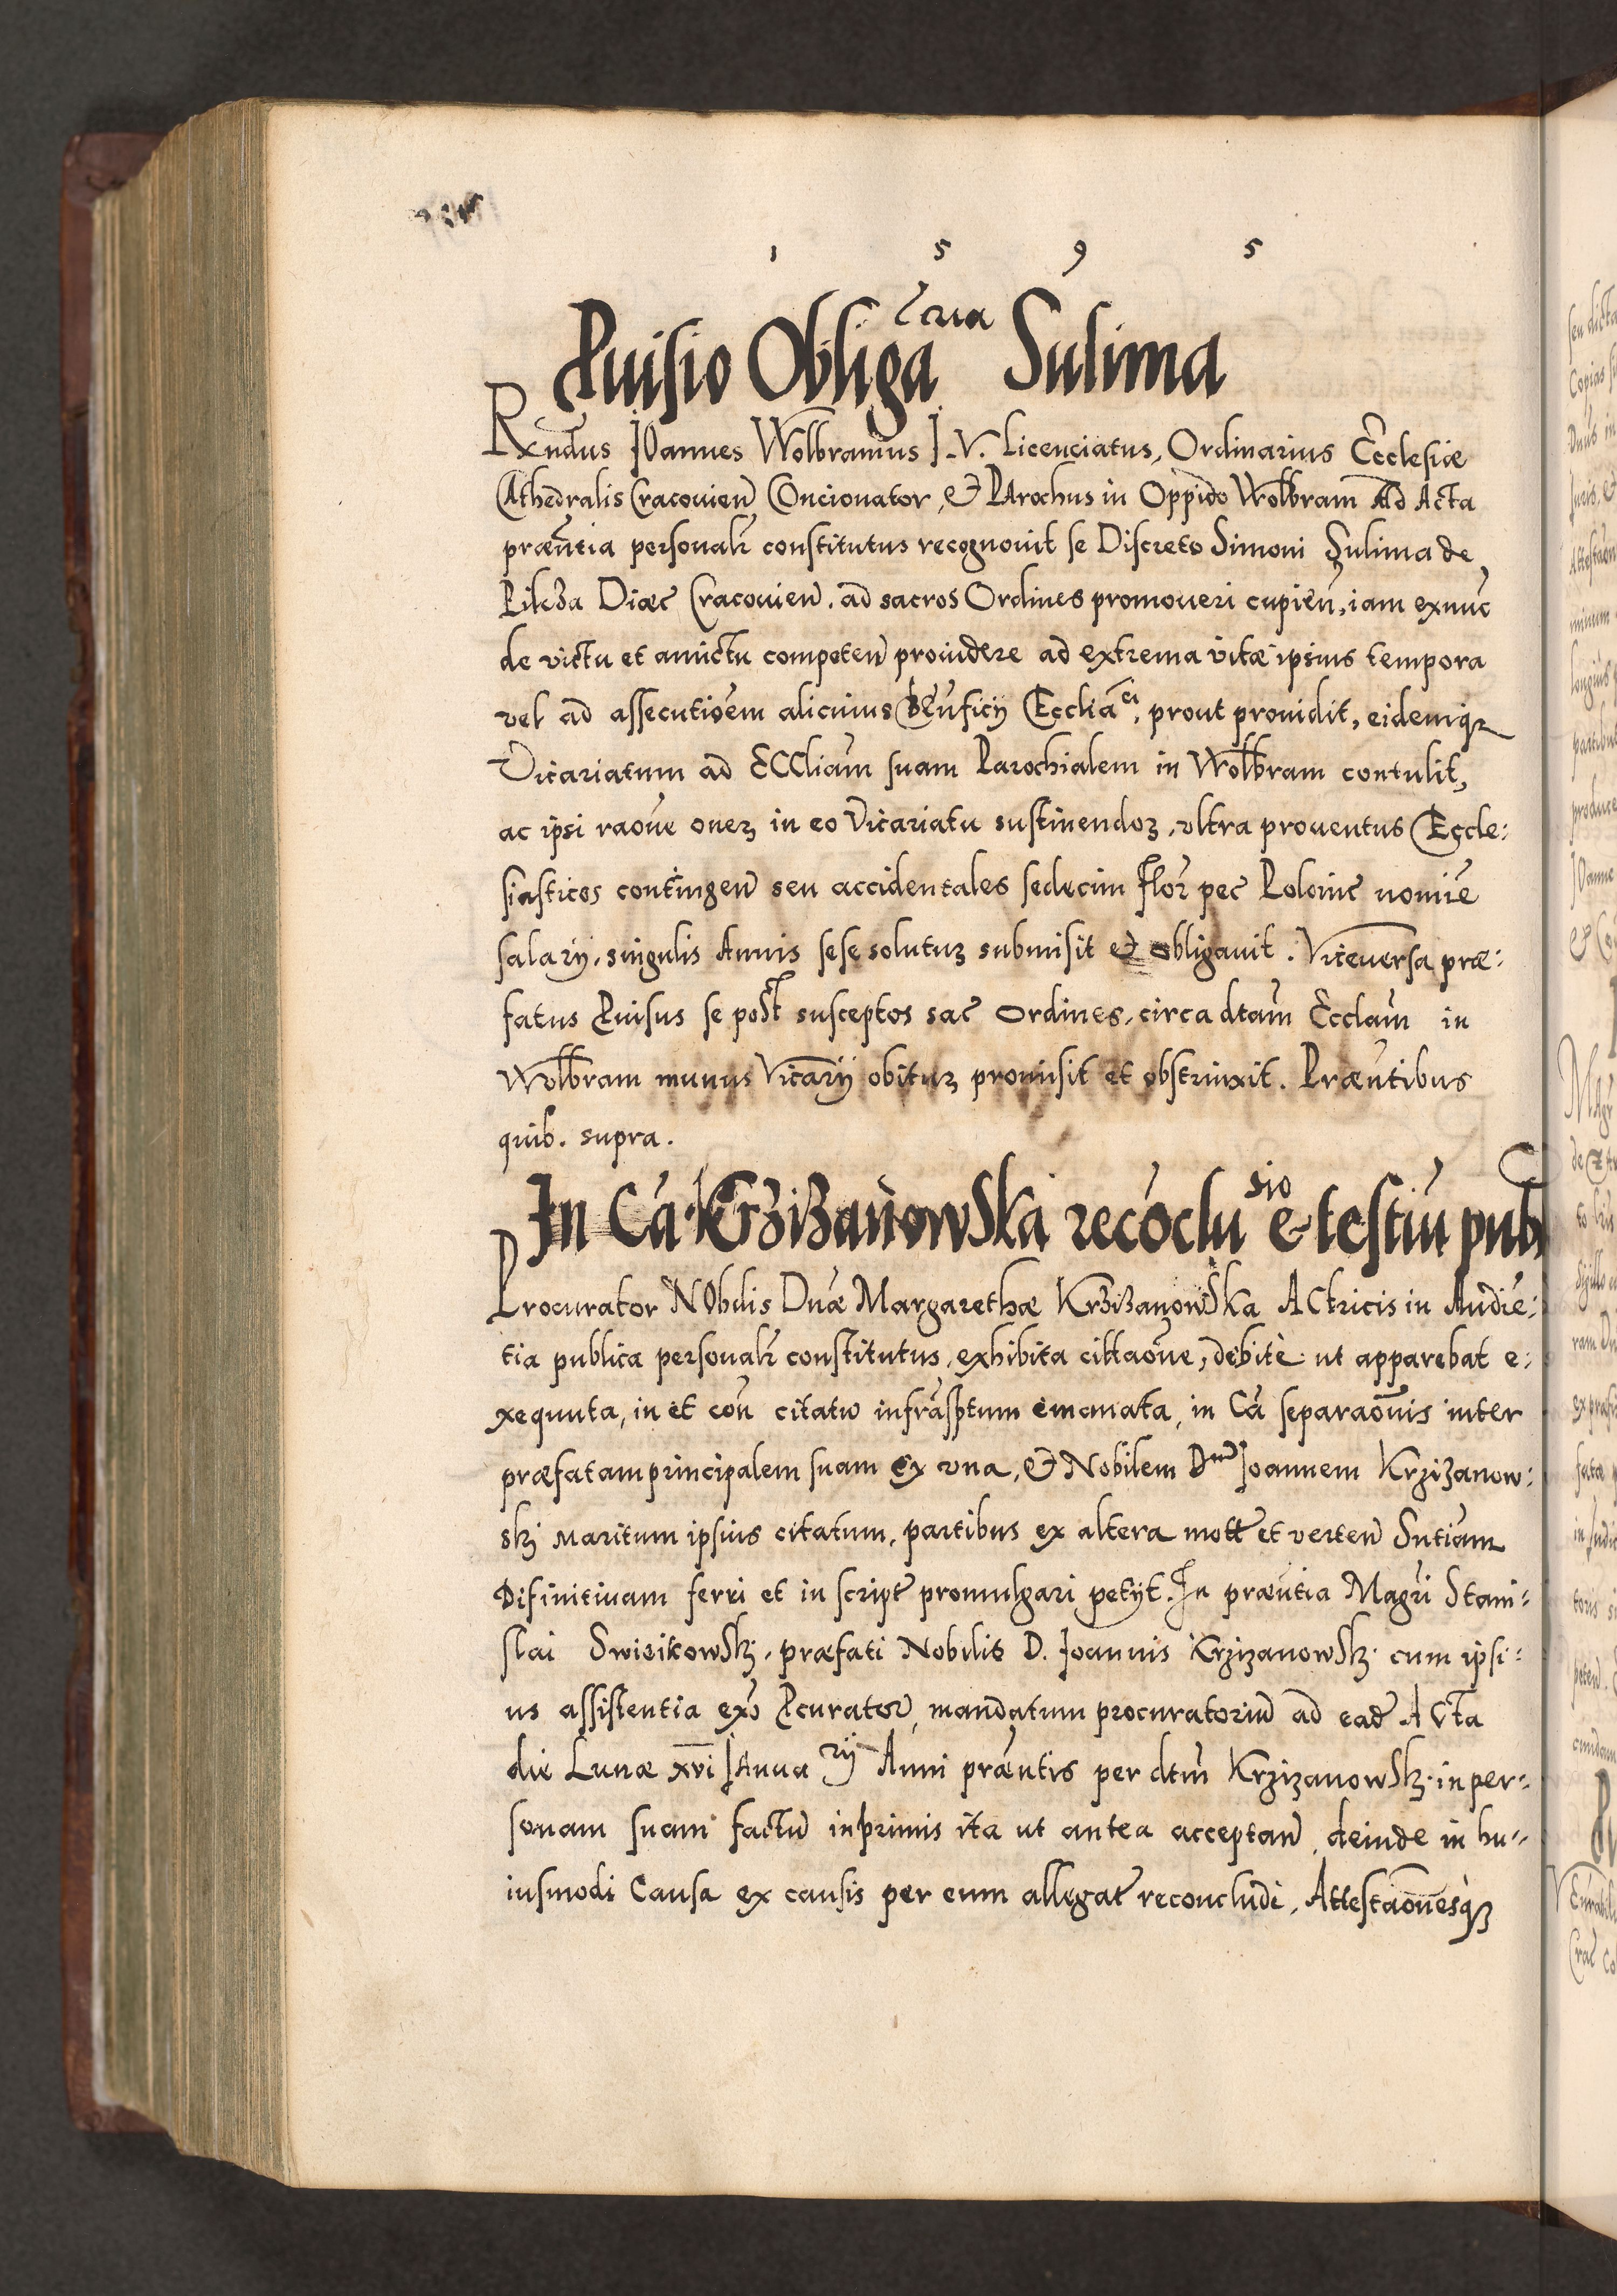 1 5 9 5
Puisio Obliga ẽrua Sulima
Rxndus JOannes Wolbramus J. V. Licenciatus, Ordinarius Ecclesiæ
CAthedralis Cracouien̄ COncionator, & PArochus in Oppido Wolbram Ad Acta
præn̄tia personalr̄ constitutus recognouit se Discreto Simoni Sulima de
Pilcza Diæc̄ Cracouien̄. ad sacros Ordines promoueri cupien̄, iam exnūc
de victu et amictu competen̄ prouidere ad extrema vitæ ipsius tempora
vel ad assecutiōem alicuius bEn̄ficij Eccliā ei, prout prouidit, eidemqꝫ
Vicariatum ad ECCliam̄ suam Parochialem in Wolbram contulit,
ac ipsi raōne oneꝝ in eo Vicariatu sustinendoꝝ, vltra prouentus Eccle:
siasticos contingen̄ seu accidentales sedecim Flor̄ pec̄ Polonic̄ nomīe
salarij, singulis Annis sese solutuꝝ submisit & obligauit. Viceuersa præ:
fatus Puisus se post susceptos sac̄ Ordines, circa dtam̄ Ecclam̄ in
Wolbram munus Vicarij obituꝝ promisit et obstrinxit. Præn̄tibus
quib. supra.
In Cā. Krziżanowska recōclu sio & testiū pub
Procurator NObilis Dn̄æ Margarethæ Krziżanowska ACtricis in Audiē:
tia publica personalr̄ constitutus, exhibita cittaōne, debitè ut apparebat e:
xequuta, in et con̄ citatū infrasp̄tum emanata, in Cā separaōnis inter
præfatam principalem suam ex vna, & Nobilem Dnū Joannem Krziżanow:
skj maritum ipsius citatum, partibus ex altera mott̄ et verten̄ Sn̄tiam
Difinitiuam ferri et in script̄ promulgari petijt. In præn̄tia Magr̄i Stani:
slai Swicikowskj, præfati Nobilis D. Joannis Krziżanowskj cum ipsi:
us assistentia exō Pcurator̄, mandatum procuratoriū ad ead̄ ACta
die Lunæ xvi JAnua rij Anni præn̄tis per dtm̄ Krziżanowskj in per:
sonam suam factū inprimis ita ut antea acceptan̄, deinde in hu:
iusmodi Causa ex causis per eum allegat̄ reconcludi, Attestaōnesqꝫ